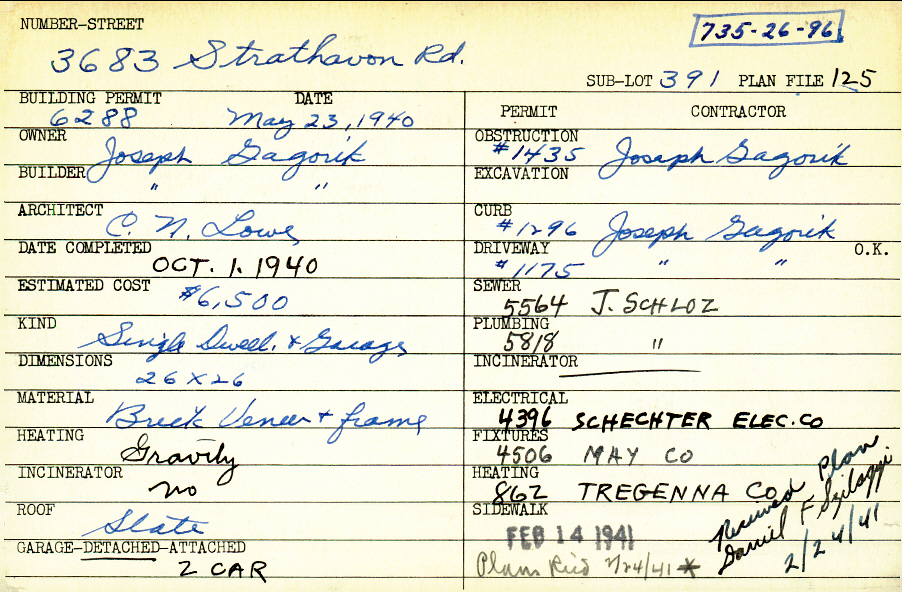 NUMBER-STREET
735-26-96
3683 Strathavon Rd.
SUB-LOT 391 PLAN FILE 125
BUILDING PERMIT DATE
6288 May 23, 1940
OWNER
Joseph Gagorik
BUILDER
" "
ARCHITECT
C. N. Lowe
DATE COMPLETED
OCT. 1. 1940
ESTIMATED COST
$6,500
KIND
Single Dwell. & Garage
DIMENSIONS
26 X 26
MATERIAL
Brick Veneer + frame
HEATING
Gravity
INCINERATOR
no
ROOF
Slate
GARAGE-DETACHED-ATTACHED
2 CAR
PERMIT CONTRACTOR
OBSTRUCTION
#1435 Joseph Gagorik
EXCAVATION
CURB
#1296 Joseph Gagorik
DRIVEWAY O.K.
#1175 " "
SEWER
5564 J. SCHLOZ
PLUMBING
5818 "
INCINERATOR
ELECTRICAL
4396 SCHECHTER ELEC. CO
FIXTURES
4506 MAY CO
HEATING
862 TREGENNA CO.
SIDEWALK
FEB 14 1941
Plans Rec'd 2/24/41 *
Received Plan
Daniel F. Szilagyi
2/24/41